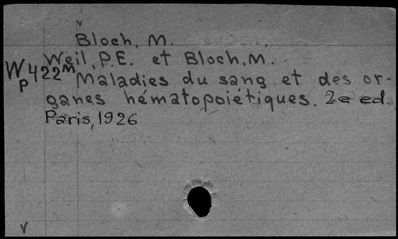 Bloch, M.
Weil, P.E. et Bloch, M.
Wp422M Maladies du sang et des or-
ganes hématopoiétiques. 2e ed.
Paris, 1926